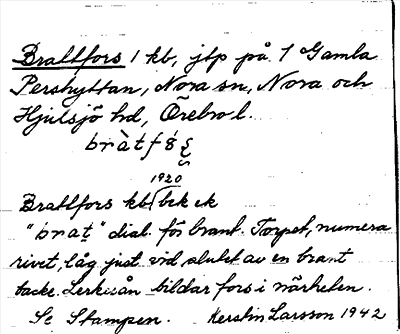 Brattfors 1 kb, jtp på 1 Gamla
Pershyttan, Nora sn, Nora och
Hjulsjö hd, Örebro l.
bràtfö́ṣ
1920
Brattfors kb bek ek
"brat" dial. för brant. Torpet, numera
rivet, låg just vid slutet av en brant
backe. Lerkesån bildar fors i närheten.
Se Stampen. Kerstin Larsson 1942